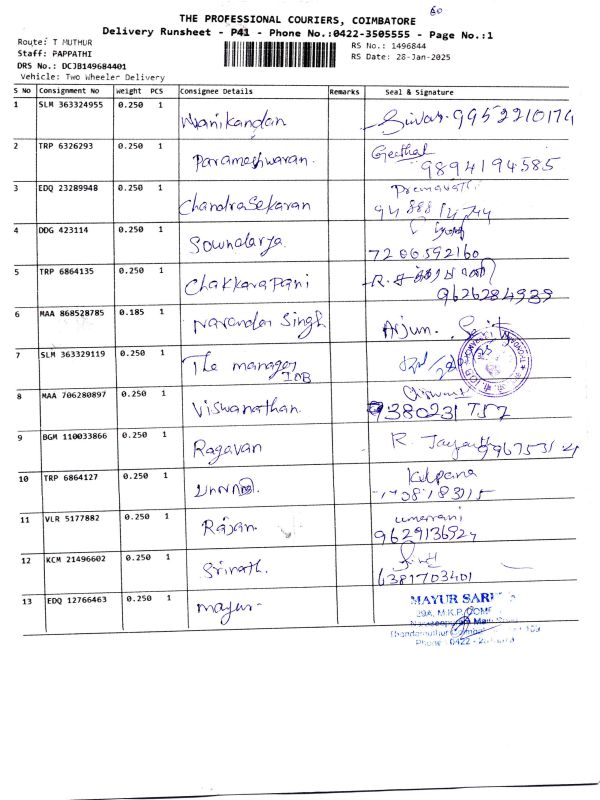 60
THE PROFESSIONAL COURIERS, COIMBATORE
Delivery Runsheet - P41 - Phone No.:0422-3505555 - Page No.:1
Route: T MUTHUR
RS No.: 1496844
Staff: PAPPATHI
RS Date: 28-Jan-2025
DRS No.: DCJB149684401
Vehicle: Two Wheeler Delivery
S No Consignment No Weight PCS Consignee Details Remarks Seal & Signature
1 SLM 363324955 0.250 1 Manikandan 9952210174
2 TRP 6326293 0.250 1 Parameshwaran. Geetha
9894194585
3 EDQ 23289948 0.250 1 ChandraSekaran
4 DDG 423114 0.250 1 Sowndarya
7200592160
5 TRP 6864135 0.250 1 Chakkarapani
9626284939
6 MAA 868528785 0.185 1 Narander Singh Arjun.
7 SLM 363329119 0.250 1 The manager
IOB
8 MAA 706280897 0.250 1 Viswanathan.
9 BGM 110033866 0.250 1 Ragavan R.
10 TRP 6864127 0.250 1 Kalpana
11 VLR 5177882 0.250 1 Rajan.
12 KCM 21496602 0.250 1 Srinath.
6381703401
13 EDQ 12766463 0.250 1 mayur
MAYUR
29A, M.K.P.
Phone : 0422 -